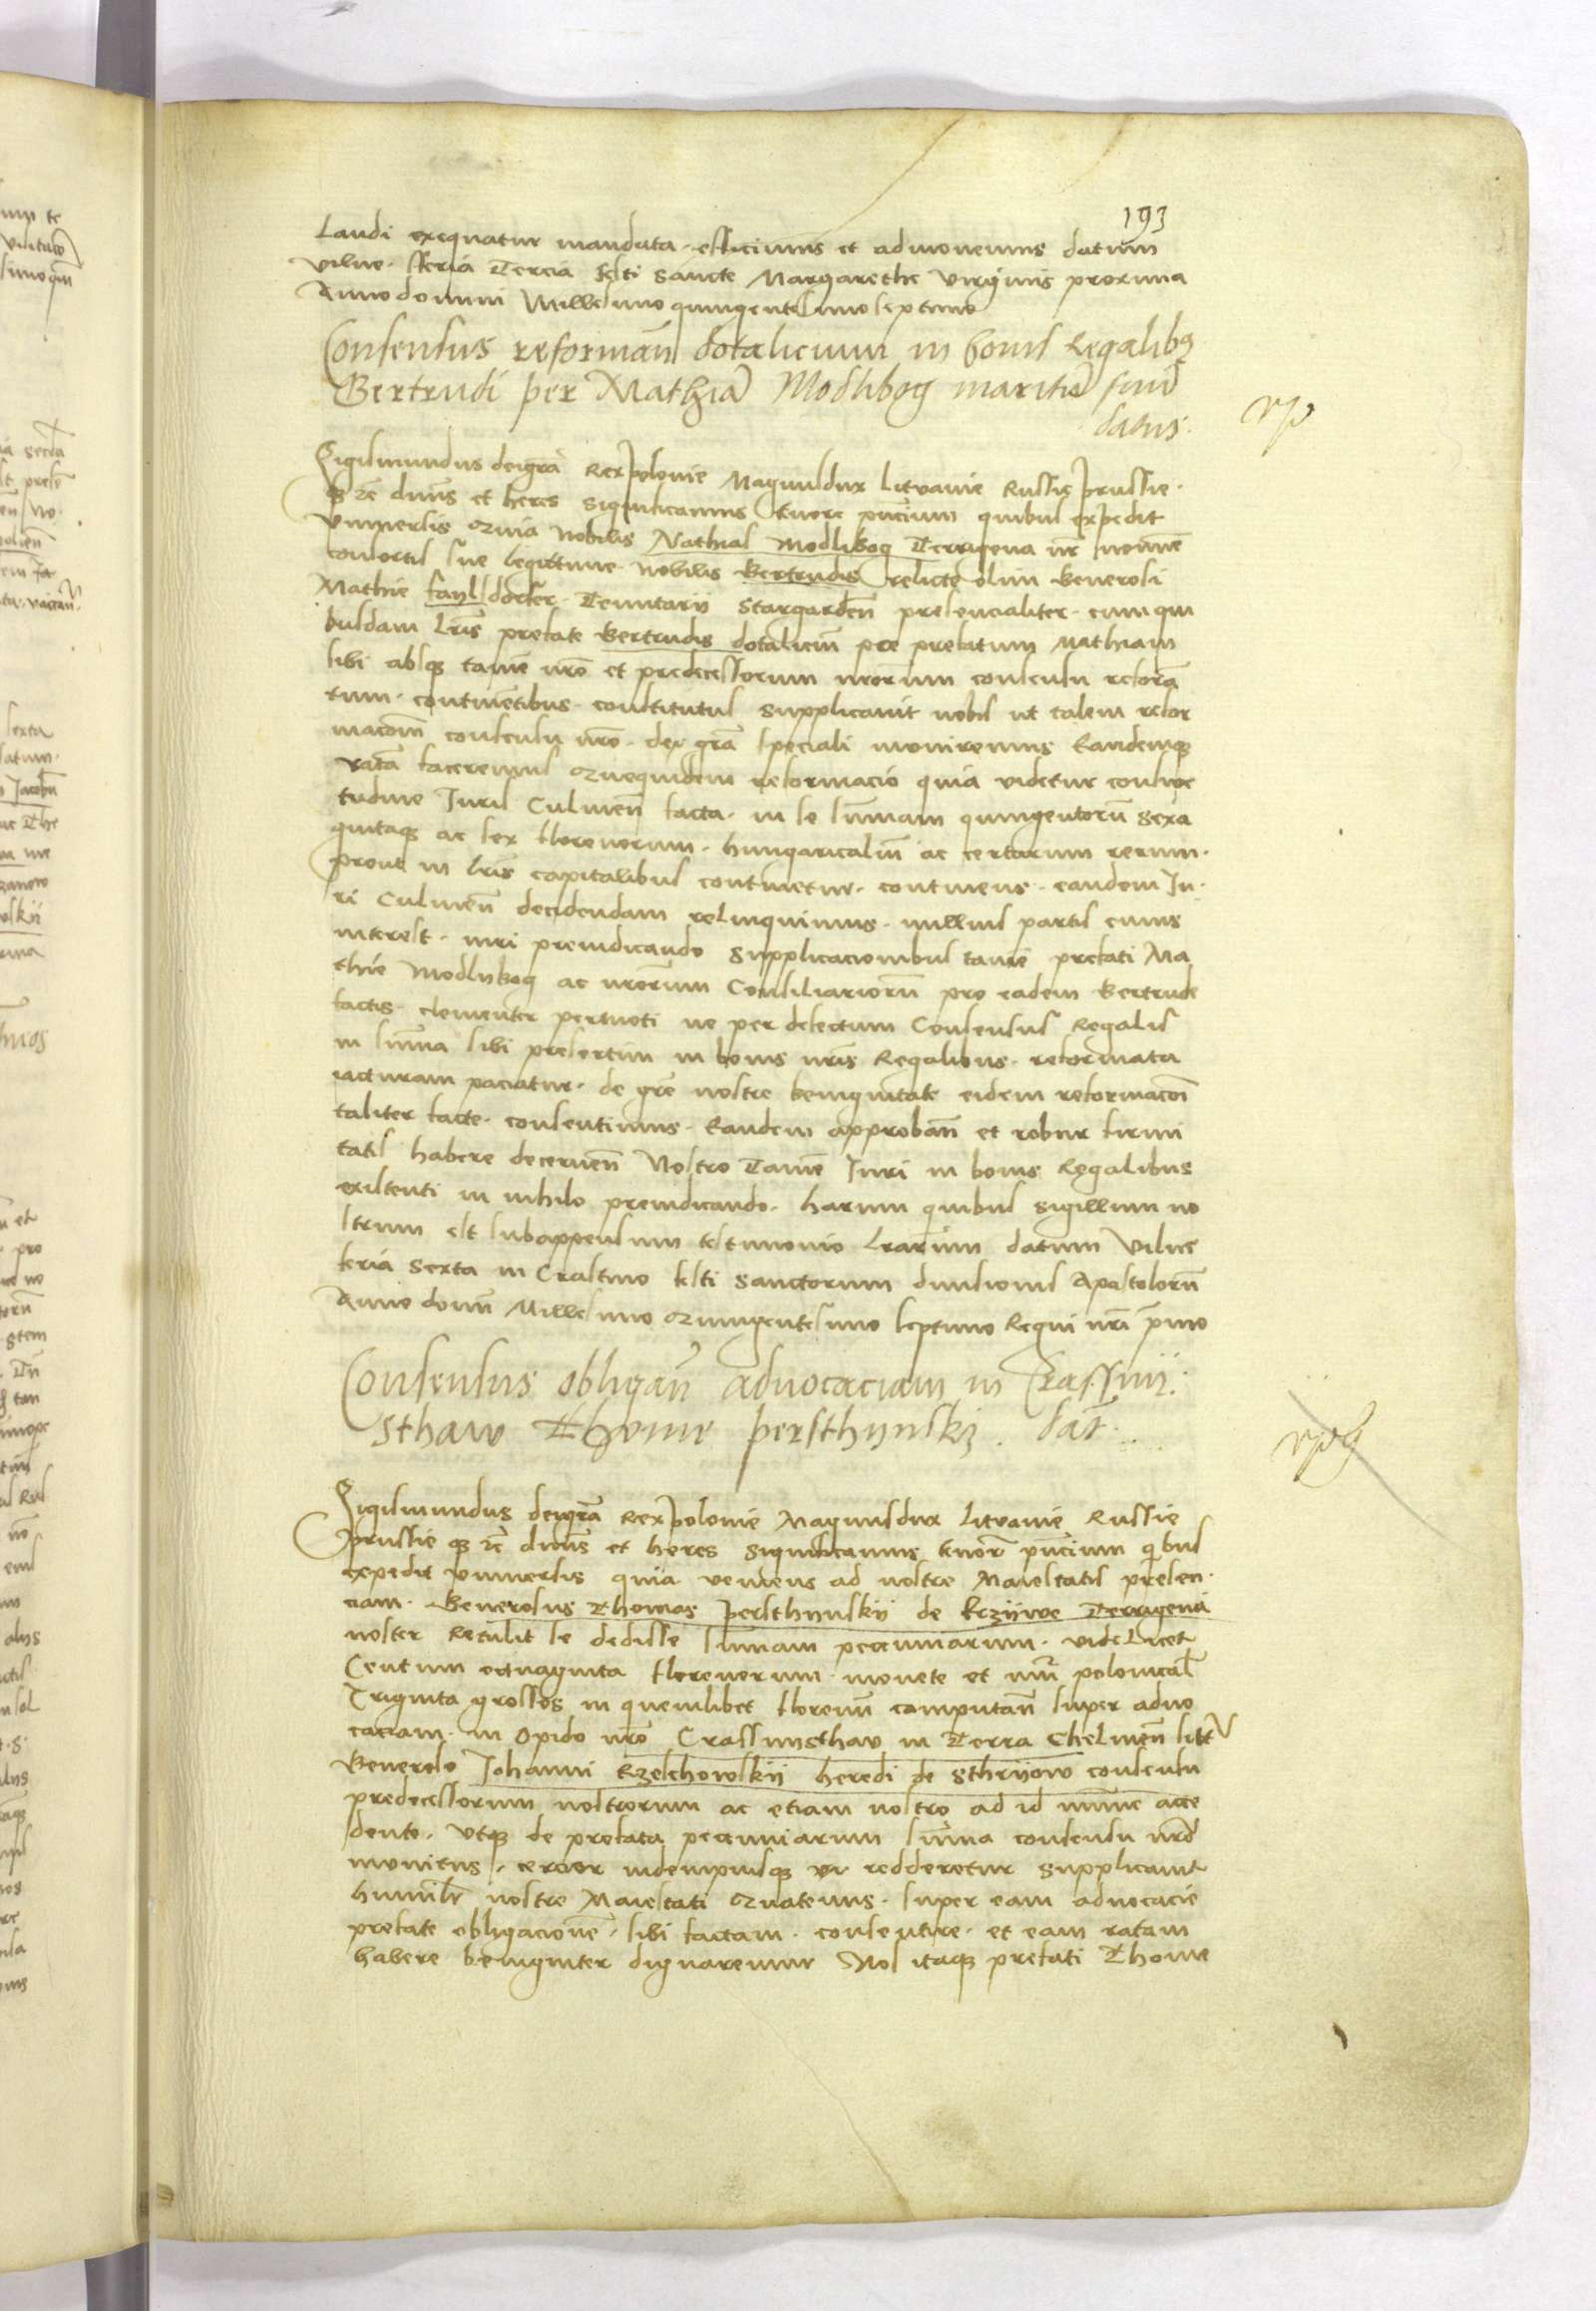 193
Laudi exequatur mandata efficimus et admonemus datum
Vilne feria Tercia festi sancte Margarethe virginis proxima
Anno domini Millesimo quingentesimo septimo
Consensus reforman̄ dotalicium in bonis Regalibꝫ
Gertrudi per Mathiā Modlibog maritū suū
datus
Sigismundus dei grā Rex polonie Magnus dux Litvanie Russie prussie
qꝫ zc̄ dn̄us et heres significamus tenore pn̄cium quibus expedit
vniuersis Quia Nobilis Mathias Modlibog Terrigena nr̄ nomīe
consortis sue legittime nobilis Gertrudis relicte olim Generosi
Mathie faylsdorfer Tenutarij Stargardeñ presencialiter cum qui
busdam lr̄is prefate Gertrudis dotaliciū per prefatum Mathiam
sibi absqꝫ tamē nr̄o et predecessorum nr̄orum consensu reforā
tum continētibus constitutus supplicauit nobis ut talem refor
macōm consensu nr̄o dei grā speciali muniremus Eandemqꝫ
ratā faceremus Quequidem reformacio quia videtur consue
tudine Iuris Culmeñ facta in se sūmam quingentorū sexa
gintaqꝫ ac sex florenorum hungaricaliū ac certarum rerum
prout in lr̄is capitalibus continetur continens eandem Iu
ri Culmeñ decidendam relinquimus nullius partis cuius
interest iuri preiudicando Supplicacionibus tamē prefati Ma
thie Modlybog ac nr̄orum Consiliariorū pro eadem Gertrude
factis clementer permoti ne per defectum Consensus Regalis
in sūma sibi presertim in bonis nr̄is Regalibus reformata
iacturam paciatur de grē nostre benignitate eidem reformacōi
taliter facte consentimus Eandem approbañ et robur firmi
tatis habere decerneñ Nostro Tamē Iuri in bonis Regalibus
existenti in nihilo preiudicando harum quibus sigillum no
strum est subappensum testimonio lr̄arum datum Vilne
feria Sexta in Crastino festi sanctorum diuisionis Apostolorū
Anno domī Millesimo Quingentesimo septimo Regni nr̄i p̄mo
Consensus obligañ aduocaciam in Crassnij
sthaw Thome persthynskj dat̄
Sigismundus dei grā Rex polonie Magnus dux Litvanie Russie
prussie qꝫ zc̄ dn̄us et heres significamus tenor̄ pn̄cium qibus
expedit vniuersis quia veniens ad nostre Maiestatis presen
ciam Generosus Thomas persthynskij de krzijwe Terrigena
noster Retulit se dedisse sūmam pecuniarum videlicet
Centum octuaginta florenorum monete et nūi polonical̄
Triginta grossos in quemlibet florenū computañ super aduo
caciam in Opido nr̄o Crassnysthaw in Terra Chelmeñ
Generoso Johanni Rzelchowskij heredi de Sthrijow consensu
predecessorum nostrorum ac etiam nostro ad id nunc acce
dente Vtqꝫ de prefata pecuniarum sūma consensu nr̄o
munitus cercior indempnisqꝫ redderetur supplicauit
humilr̄ nostre Maiestati Quatenus super eam aduocacie
prefate obligacionē sibi factam consentire et eam ratam
habere benigniter dignaremur Nos itaqꝫ prefati Thome